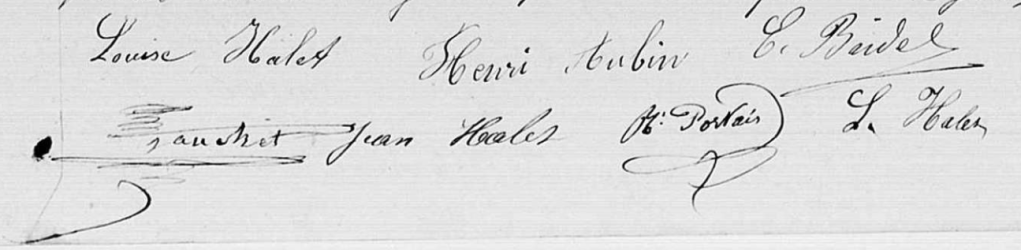 Louise Halet Henri Aubin E. Bridel
Gauchet Jean Halet H. Portais L. Halet